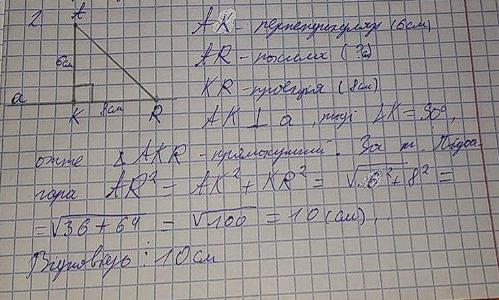 2. A
AK - перпендикуляр (6см)
AR - похила (?см)
6см
KR - проекція (8см)
a K 8см R
AK ⊥ a, тоді ∠K = 90°,
отже △AKR - прямокутний. За т. Піфа-
гора AR² = AK² + KR² = √6² + 8² =
= √36 + 64 = √100 = 10 (см)
Відповідь: 10см